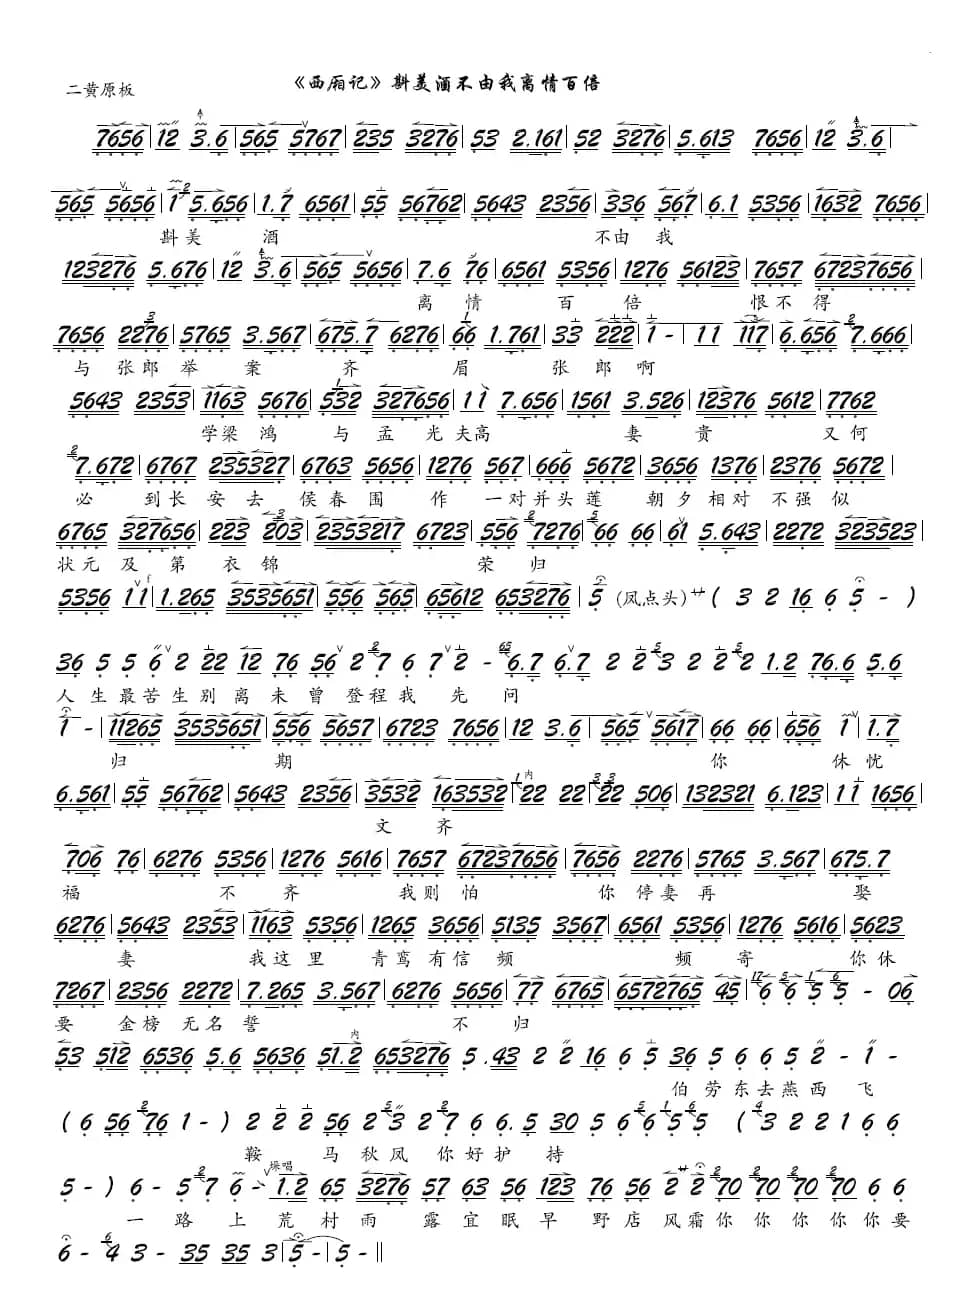 《西厢记》斟美酒不由我离情百倍
二黄原板
7656 | 12 3.6 | 565 5767 | 235 3276 | 53 2.161 | 52 3276 | 5.613 7656 | 12 3.6 |
565 5656 | 1 5.656 | 1.7 6561 | 55 56762 | 5643 2356 | 336 567 | 6.1 5356 | 1632 7656 |
斟美 酒 不由 我
123276 5.676 | 12 3.6 | 565 5656 | 7.6 76 | 6561 5356 | 1276 56123 | 7657 67237656 |
离 情 百 倍 恨不得
7656 2276 | 5765 3.567 | 675.7 6276 | 66 1.761 | 33 222 | 1 - | 11 117 | 6.656 7.666 |
与 张郎举 案 齐 眉 张 郎啊
5643 2353 | 1163 5676 | 532 327656 | 11 7.656 | 1561 3.526 | 12376 5612 | 7762
学梁 鸿 与 孟 光夫高 妻 贵 又何
7.672 | 6767 235327 | 6763 5656 | 1276 567 | 666 5672 | 3656 1376 | 2376 5672 |
必 到长 安去 侯春围 作 一对并头莲 朝夕相对 不强 似
6765 327656 | 223 203 | 2353217 6723 | 556 7276 | 66 66 | 61 5.643 | 2272 323523 |
状元 及 第 衣锦 荣 归
5356 11 | 1.265 3535651 | 556 565 | 65612 653276 | 5 (凤点头) 艹 ( 3 2 16 6 5 - )
36 5 5 6 2 22 12 76 56 2 7 6 7 2 - 6.7 6.7 2 2 3 2 2 2 1.2 76.6 5.6
人生最苦生别离 未 曾登程我 先 问
1 - | 11265 3535651 | 556 5657 | 6723 7656 | 12 3.6 | 565 5617 | 66 66 | 656 1 | 1.7
归 期 你 休忧
6.561 | 55 56762 | 5643 2356 | 3532 163532 | 22 22 | 22 506 | 132321 6.123 | 11 1656 |
文 齐
706 76 | 6276 5356 | 1276 5616 | 7657 67237656 | 7656 2276 | 5765 3.567 | 675.7
福 不 齐 我则 怕 你 停妻再 娶
6276 | 5643 2353 | 1163 5356 | 1265 3656 | 5135 3567 | 6561 5356 | 1276 5616 | 5623
妻 我这里 青鸾有信 频 频 寄 你休
7267 | 2356 2272 | 7.265 3.567 | 6276 5656 | 77 6765 | 6572765 45 | 6 6 5 5 - 06
要 金榜 无名 誓 不 归
53 512 6536 5.6 5636 51.2 653276 5.43 2 2 16 6 5 36 5 6 6 5 2 - 1 -
伯劳东去燕西 飞
( 6 56 76 1 - ) 2 2 2 56 2 3 2 7 6 6.5 30 5 6 5 5 ( 3 2 2 1 6 6
鞍 马 秋风 你好护 持
5 - ) 6 - 5 7 6 - 1.2 65 3276 57 63 56 123 76 56 2 2 70 70 70 70 6 6
垛唱
一 路 上 荒 村雨 露宜眠早 野店 风霜你 你 你 你你要
6 - 4 3 - 35 35 3 | 5 - | 5 - ‖